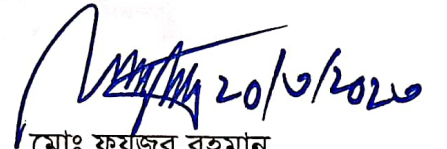 ২০/৩/২০২৩
মোঃ ফয়জুর রহমান